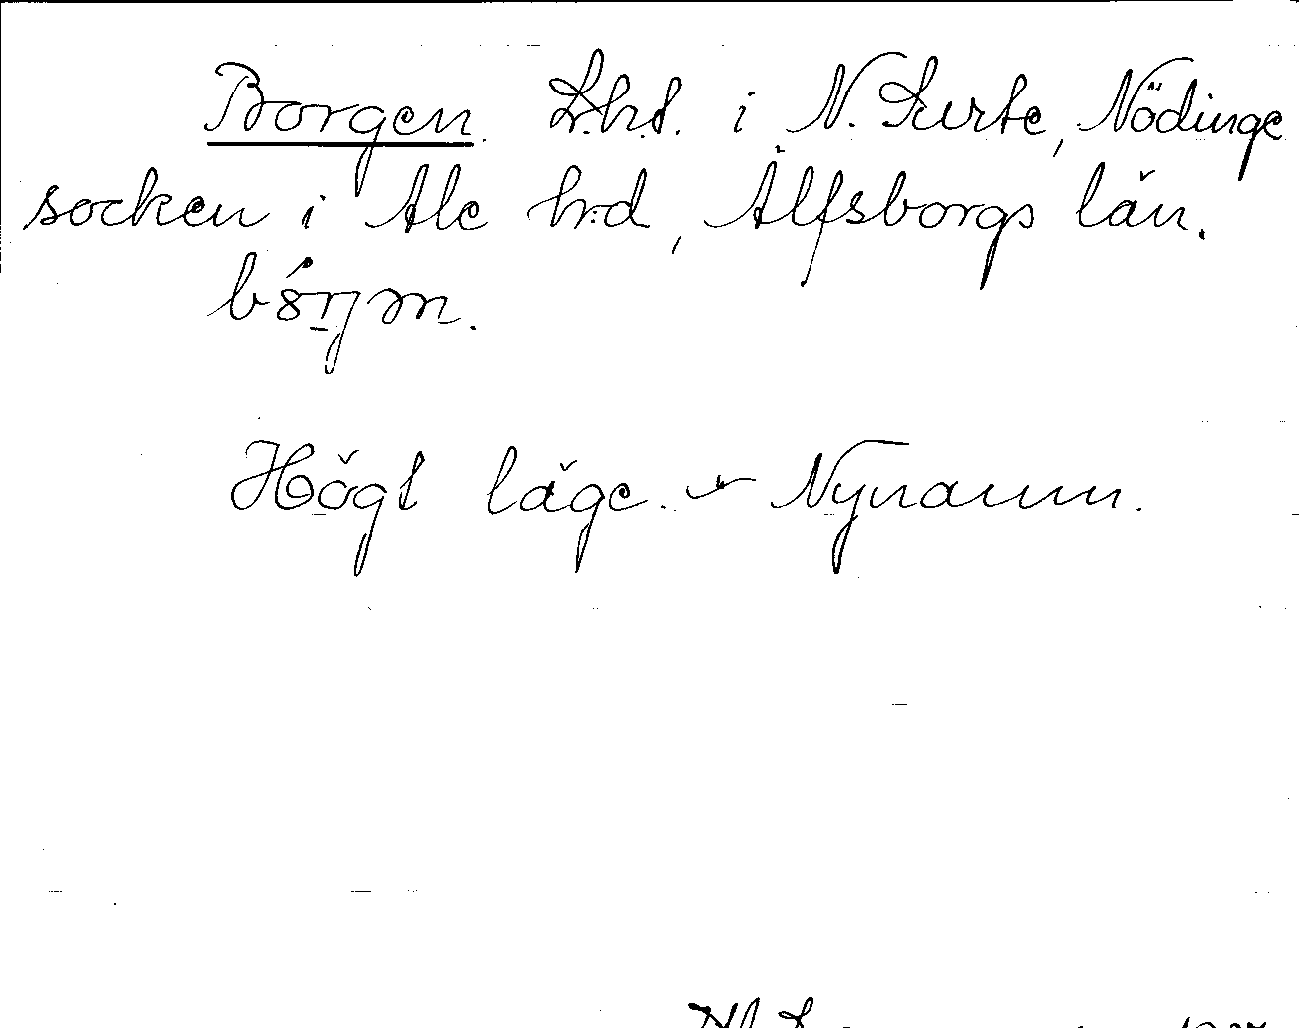 Borgen. L.h.t. i N. Surte, Nödinge
socken i Ale h:d, Älfsborgs län.
Högt läge. - Nynamn.